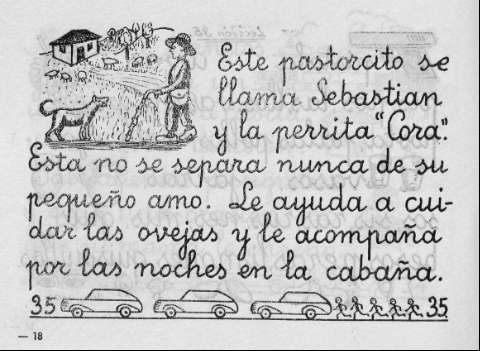 Este pastorcito se
llama Sebastian
y la perrita "Cora".
Esta no se separa nunca de su
pequeño amo. Le ayuda a cui-
dar las ovejas y le acompaña
por las noches en la cabaña.
35 35
— 18